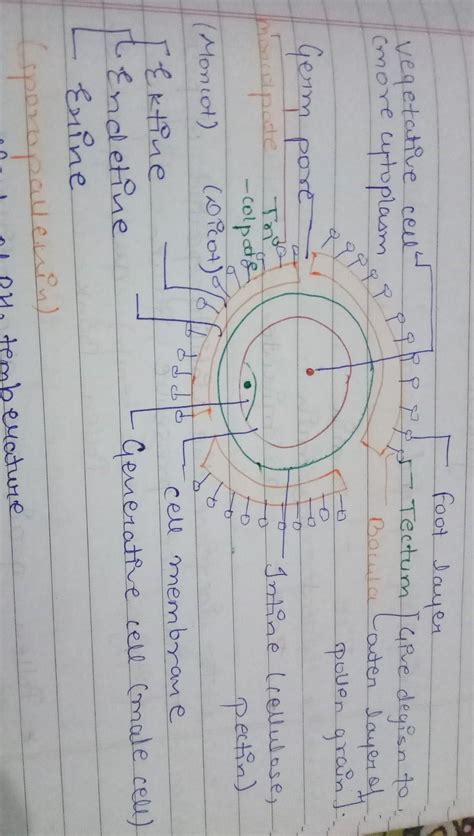 Vegetative cell
(more cytoplasm
foot layer
Tectum [Give degisn to
outer layer of
pollen grain].
Bacula
Germ pore
monocolpate
(Monicot)
Tri
-colpate
(Dicot)
Intine (cellulose,
pectin)
cell membrane
Generative cell (male cell)
Ektine
Endetine
Exine
(sporopollenin)
temperature